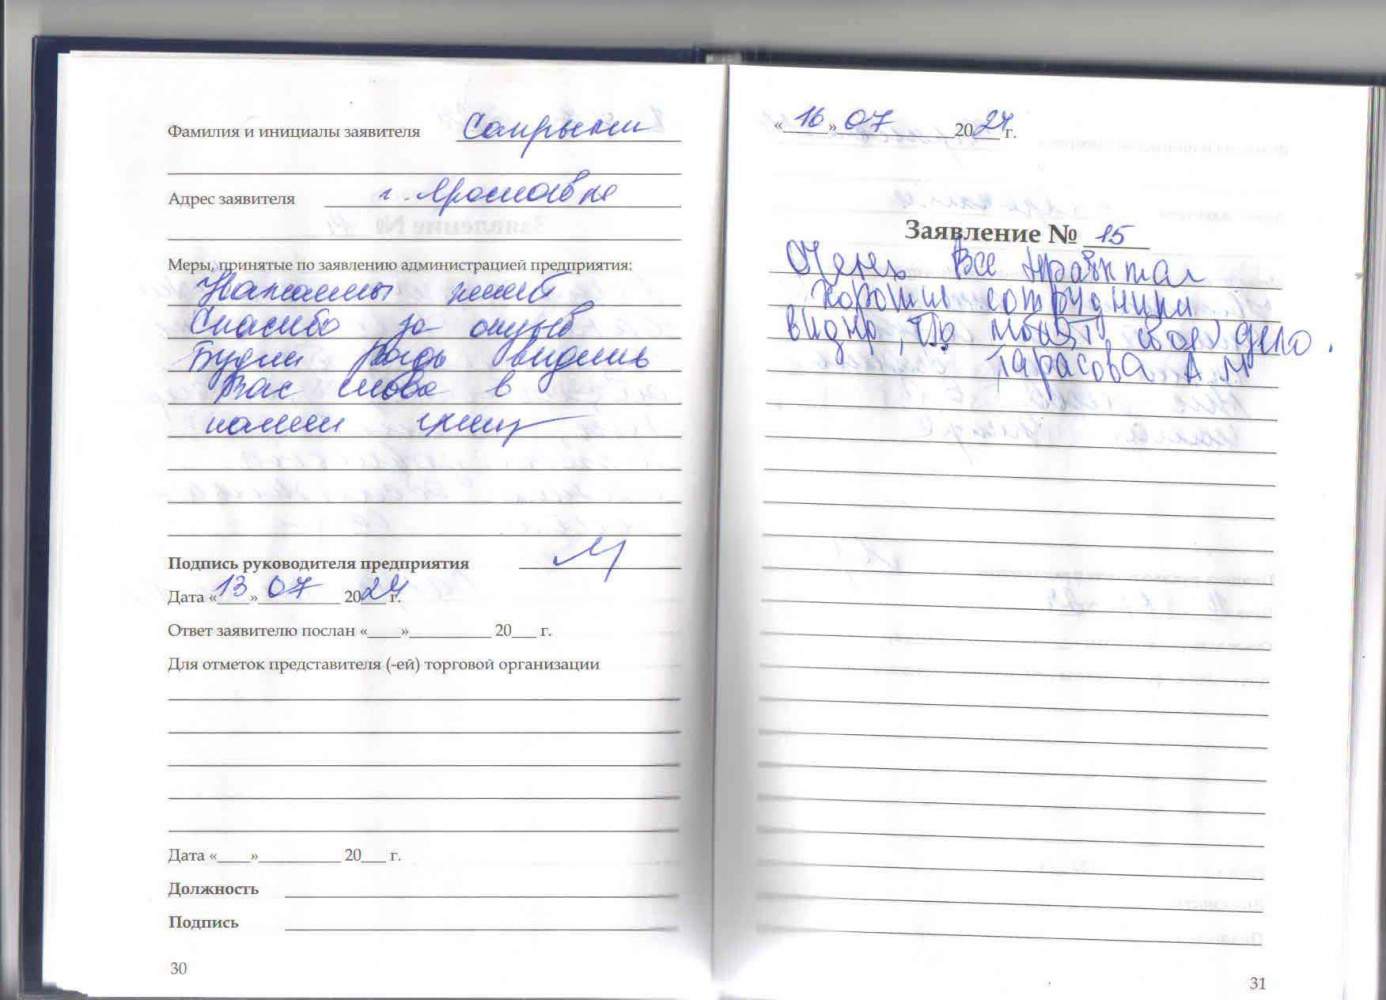 Фамилия и инициалы заявителя
Адрес заявителя г. Ярославль
Меры, принятые по заявлению администрацией предприятия:
Спасибо за отзыв
Будем рады видеть
Вас снова в
нашем
Подпись руководителя предприятия
Дата «13» 07 2024 г.
Ответ заявителю послан «____»__________ 20___ г.
Для отметок представителя (-ей) торговой организации
Дата «____»__________ 20___ г.
Должность
Подпись
30
«16» 07 2024 г.
Заявление № 15
Очень все
хорошие сотрудники
видно, что любят свое дело.
Тарасова А М
31